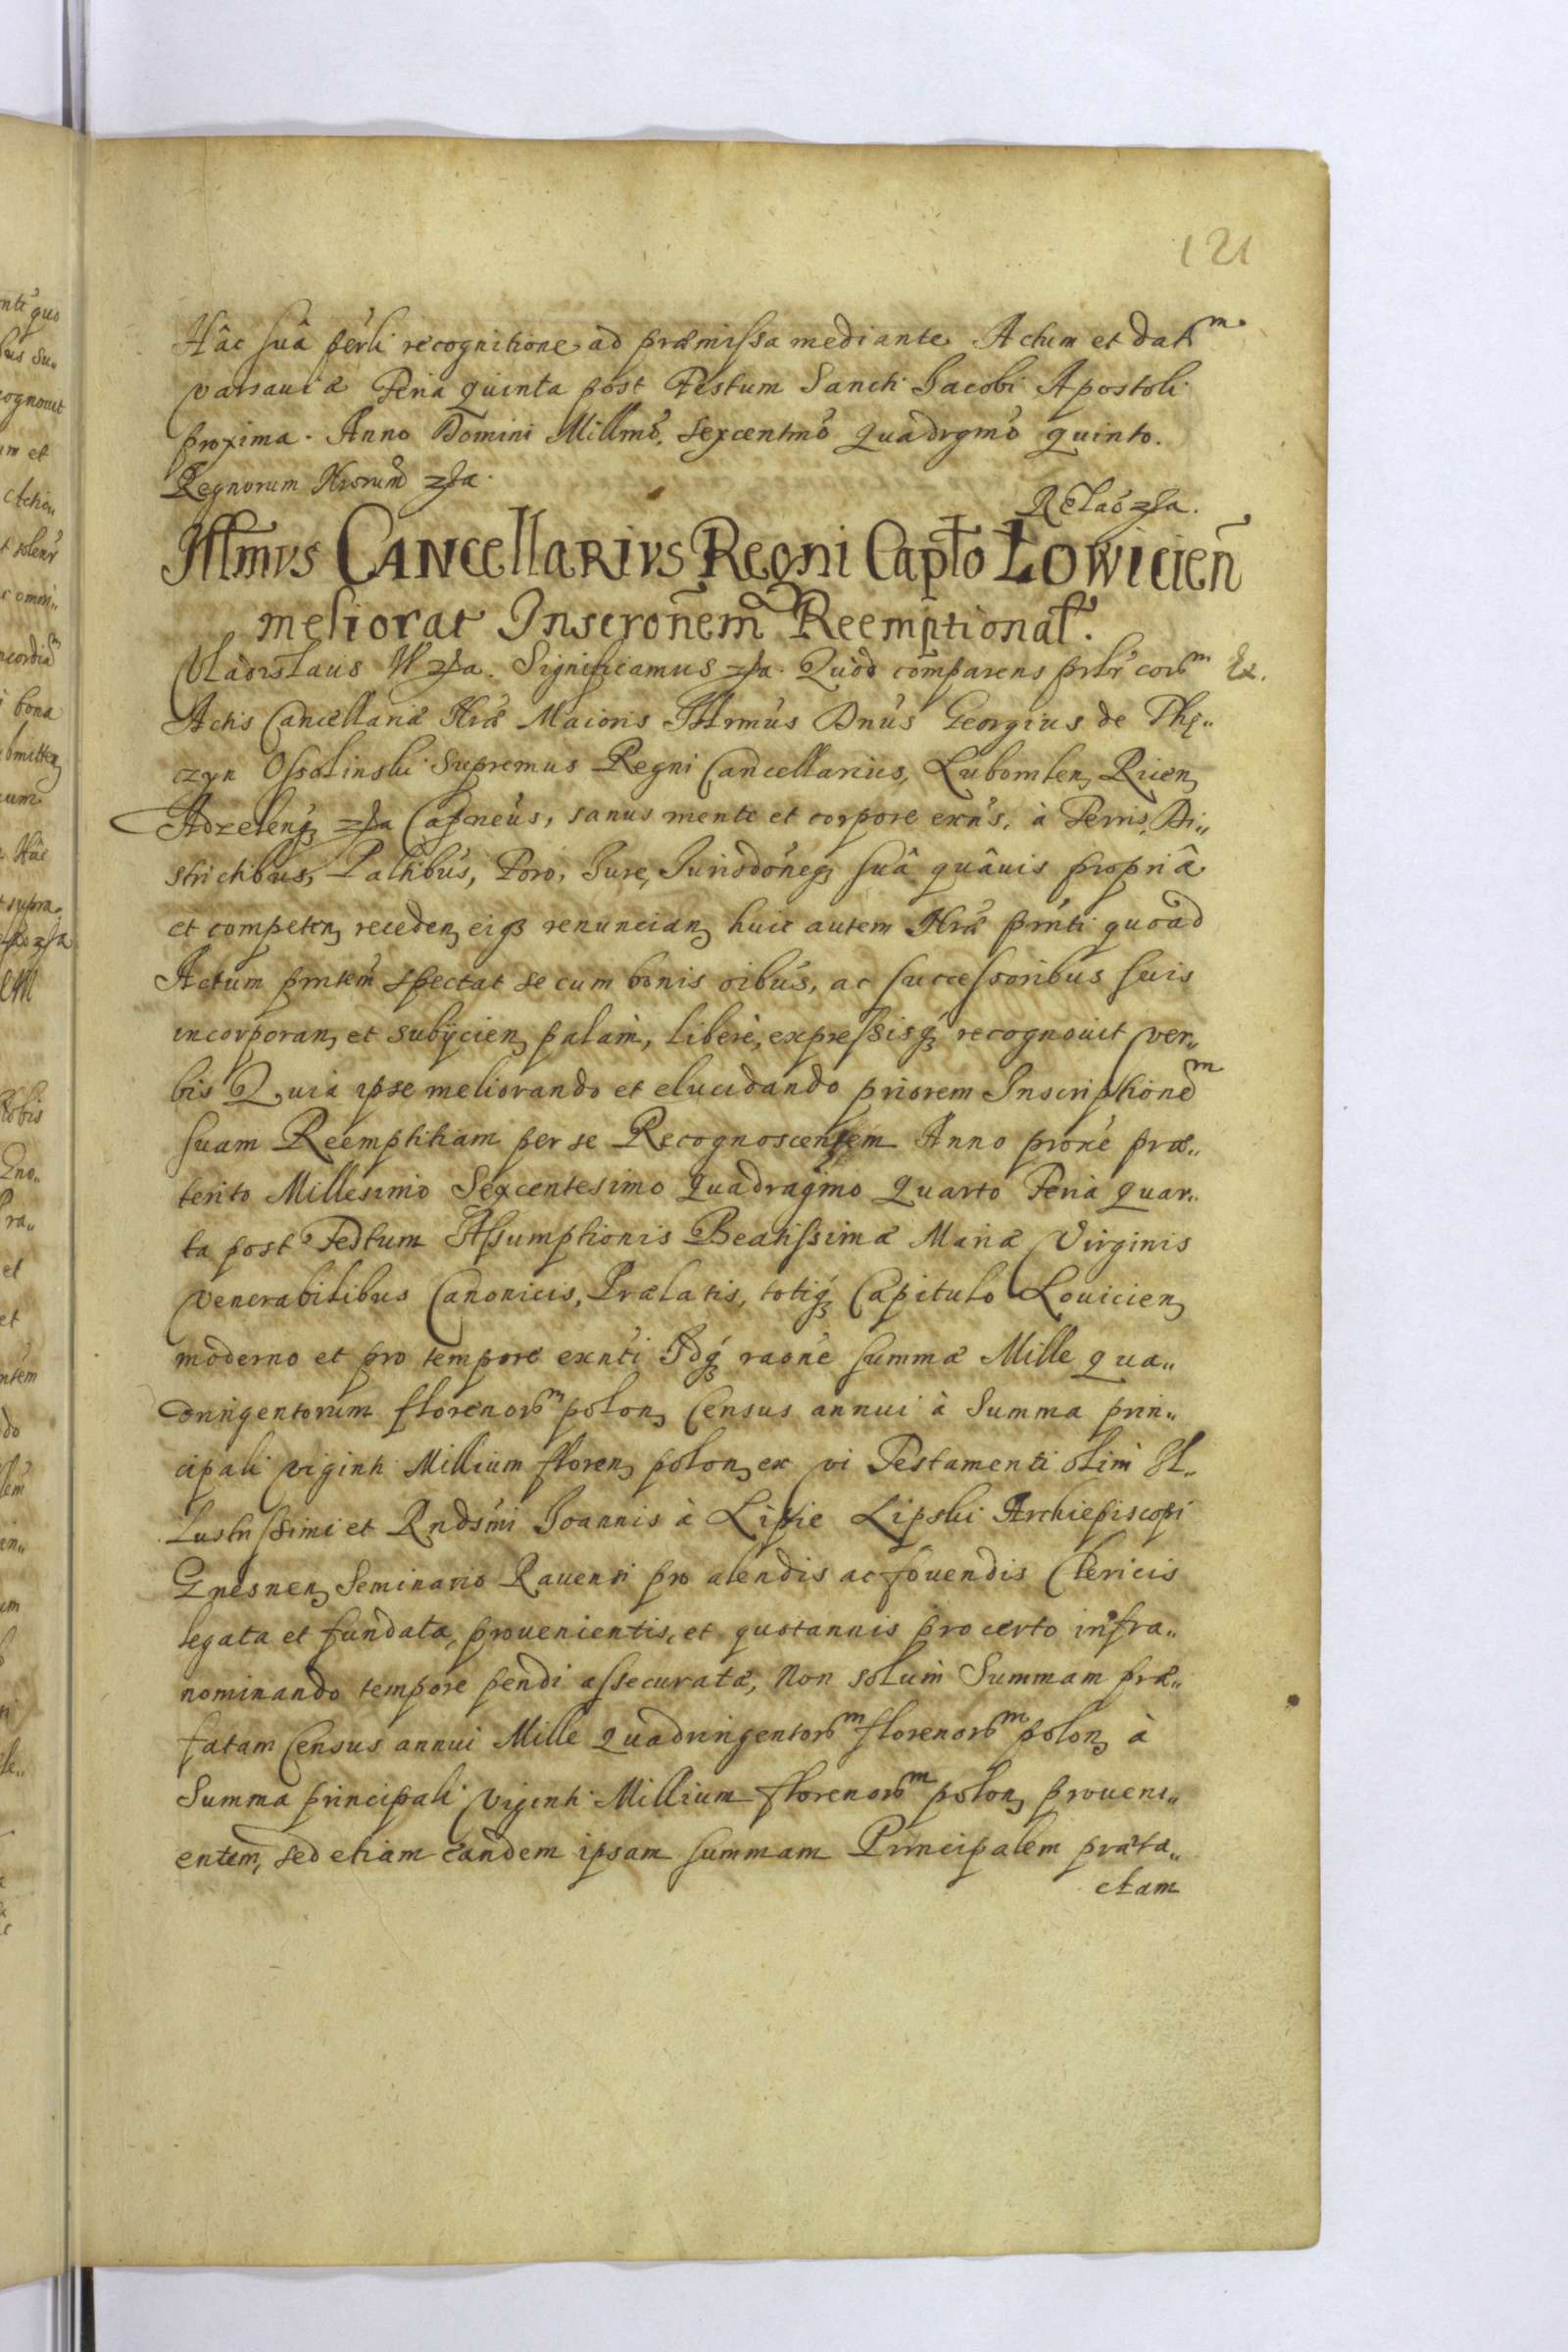 121
Hâc suâ perli recognitione ad præmissa mediante. Actum et dat m
Varsaviæ Feria quinta post Festum Sancti Jacobi Apostoli
proxima. Anno Domini Millmo. Sexcentmo Quadrgmo quinto.
Regnorum Nrorum
Relao
Illmvs Cancellarivs Regni Caplo Lowicien
meliorat Inscronem Reemptional.
Vladislaus Significamus Quod comparens prlr corm Ex.
Actis Cancellariæ Nræ Maioris Illrmus Dnus Georgius de Thę„
czyn Ossolinski Supremus Regni Cancellarius, Lubomlen, Ricen,
Adzelenq Capneus, sanus mente et corpore exns, à Terris, Di„
strictibus, Paltibus, Foro, Jure, Jurisdoneq suâ quâvis propriâ
et competen, receden, eisq renuncian, huic autem Nræ prnti quoad
Actum prntem spectat se cum bonis oibus, ac successoribus suis
incorporan, et subijcien, palam, liberè, expressisq recognouit ver„
bis Quia ipse meliorando et elucidando priorem Inscriptione m
suam Reemptitiam per se Recognoscentem Anno proxe præ„
terito Millesimo Sexcentesimo Quadragmo Quarto Feria quar„
ta post Festum Assumptionis Beatissimæ Mariæ Virginis
Venerabilibus Canonicis, Prælatis, totiq Capitulo Louicien,
moderno et pro tempore exnti Idq raone summæ Mille qua„
dringentorum florenorm polon, Census annui à Summa prin„
cipali viginti Millium floren, polon, ex vi Testamenti olim Il„
lustrissimi et Rndsmi Joannis à Lipie Lipski Archiepiscopi
Gnesnen, Seminario Rauensi pro alendis ac fouendis Clericis
legata et fundata, prouenientis, et quotannis pro certo infra„
nominando tempore pendi assecuratæ, Non solum Summam præ„
fatam Census annui Mille quadringentorm florenorm polon, à
Summa principali viginti Millium florenorm polon, proueni„
entem, sed etiam eandem ipsam summam Principalem præta„
ctam